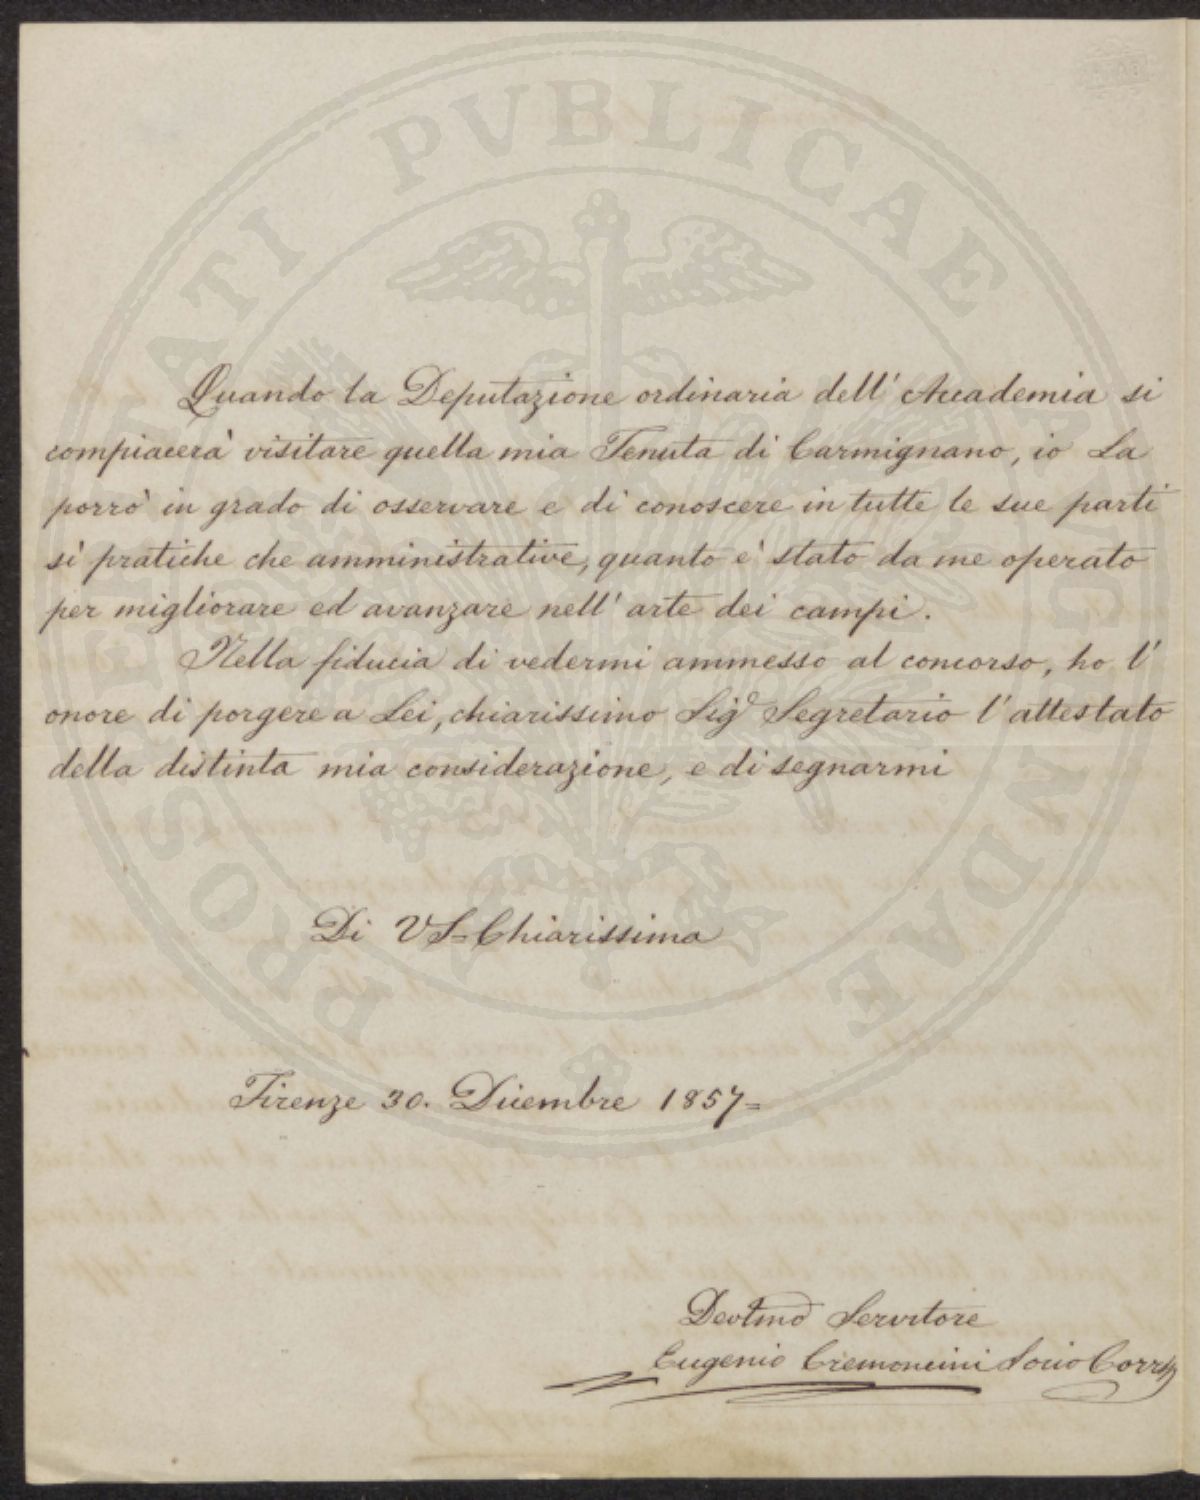 PROSPERITATI PVBLICAE AVGENDAE
Quando la Deputazione ordinaria dell' Accademia si
compiacerà visitare quella mia Tenuta di Carmignano, io La
porrò in grado di osservare e di conoscere in tutte le sue parti
sì pratiche che amministrative, quanto è stato da me operato
per migliorare ed avanzare nell' arte dei campi.
Nella fiducia di vedermi ammesso al concorso, ho l'
onore di porgere a Lei, chiarissimo Sigr Segretario l' attestato
della distinta mia considerazione, e di segnarmi
Di VS= Chiarissima
Firenze 30. Dicembre 1857=
Devotmo Servitore
Eugenio Cremoncini Socio Corrisp